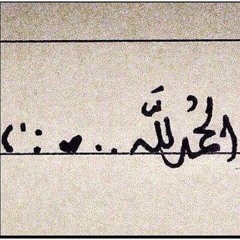 الحمدُ للَّه .. ♥ : )